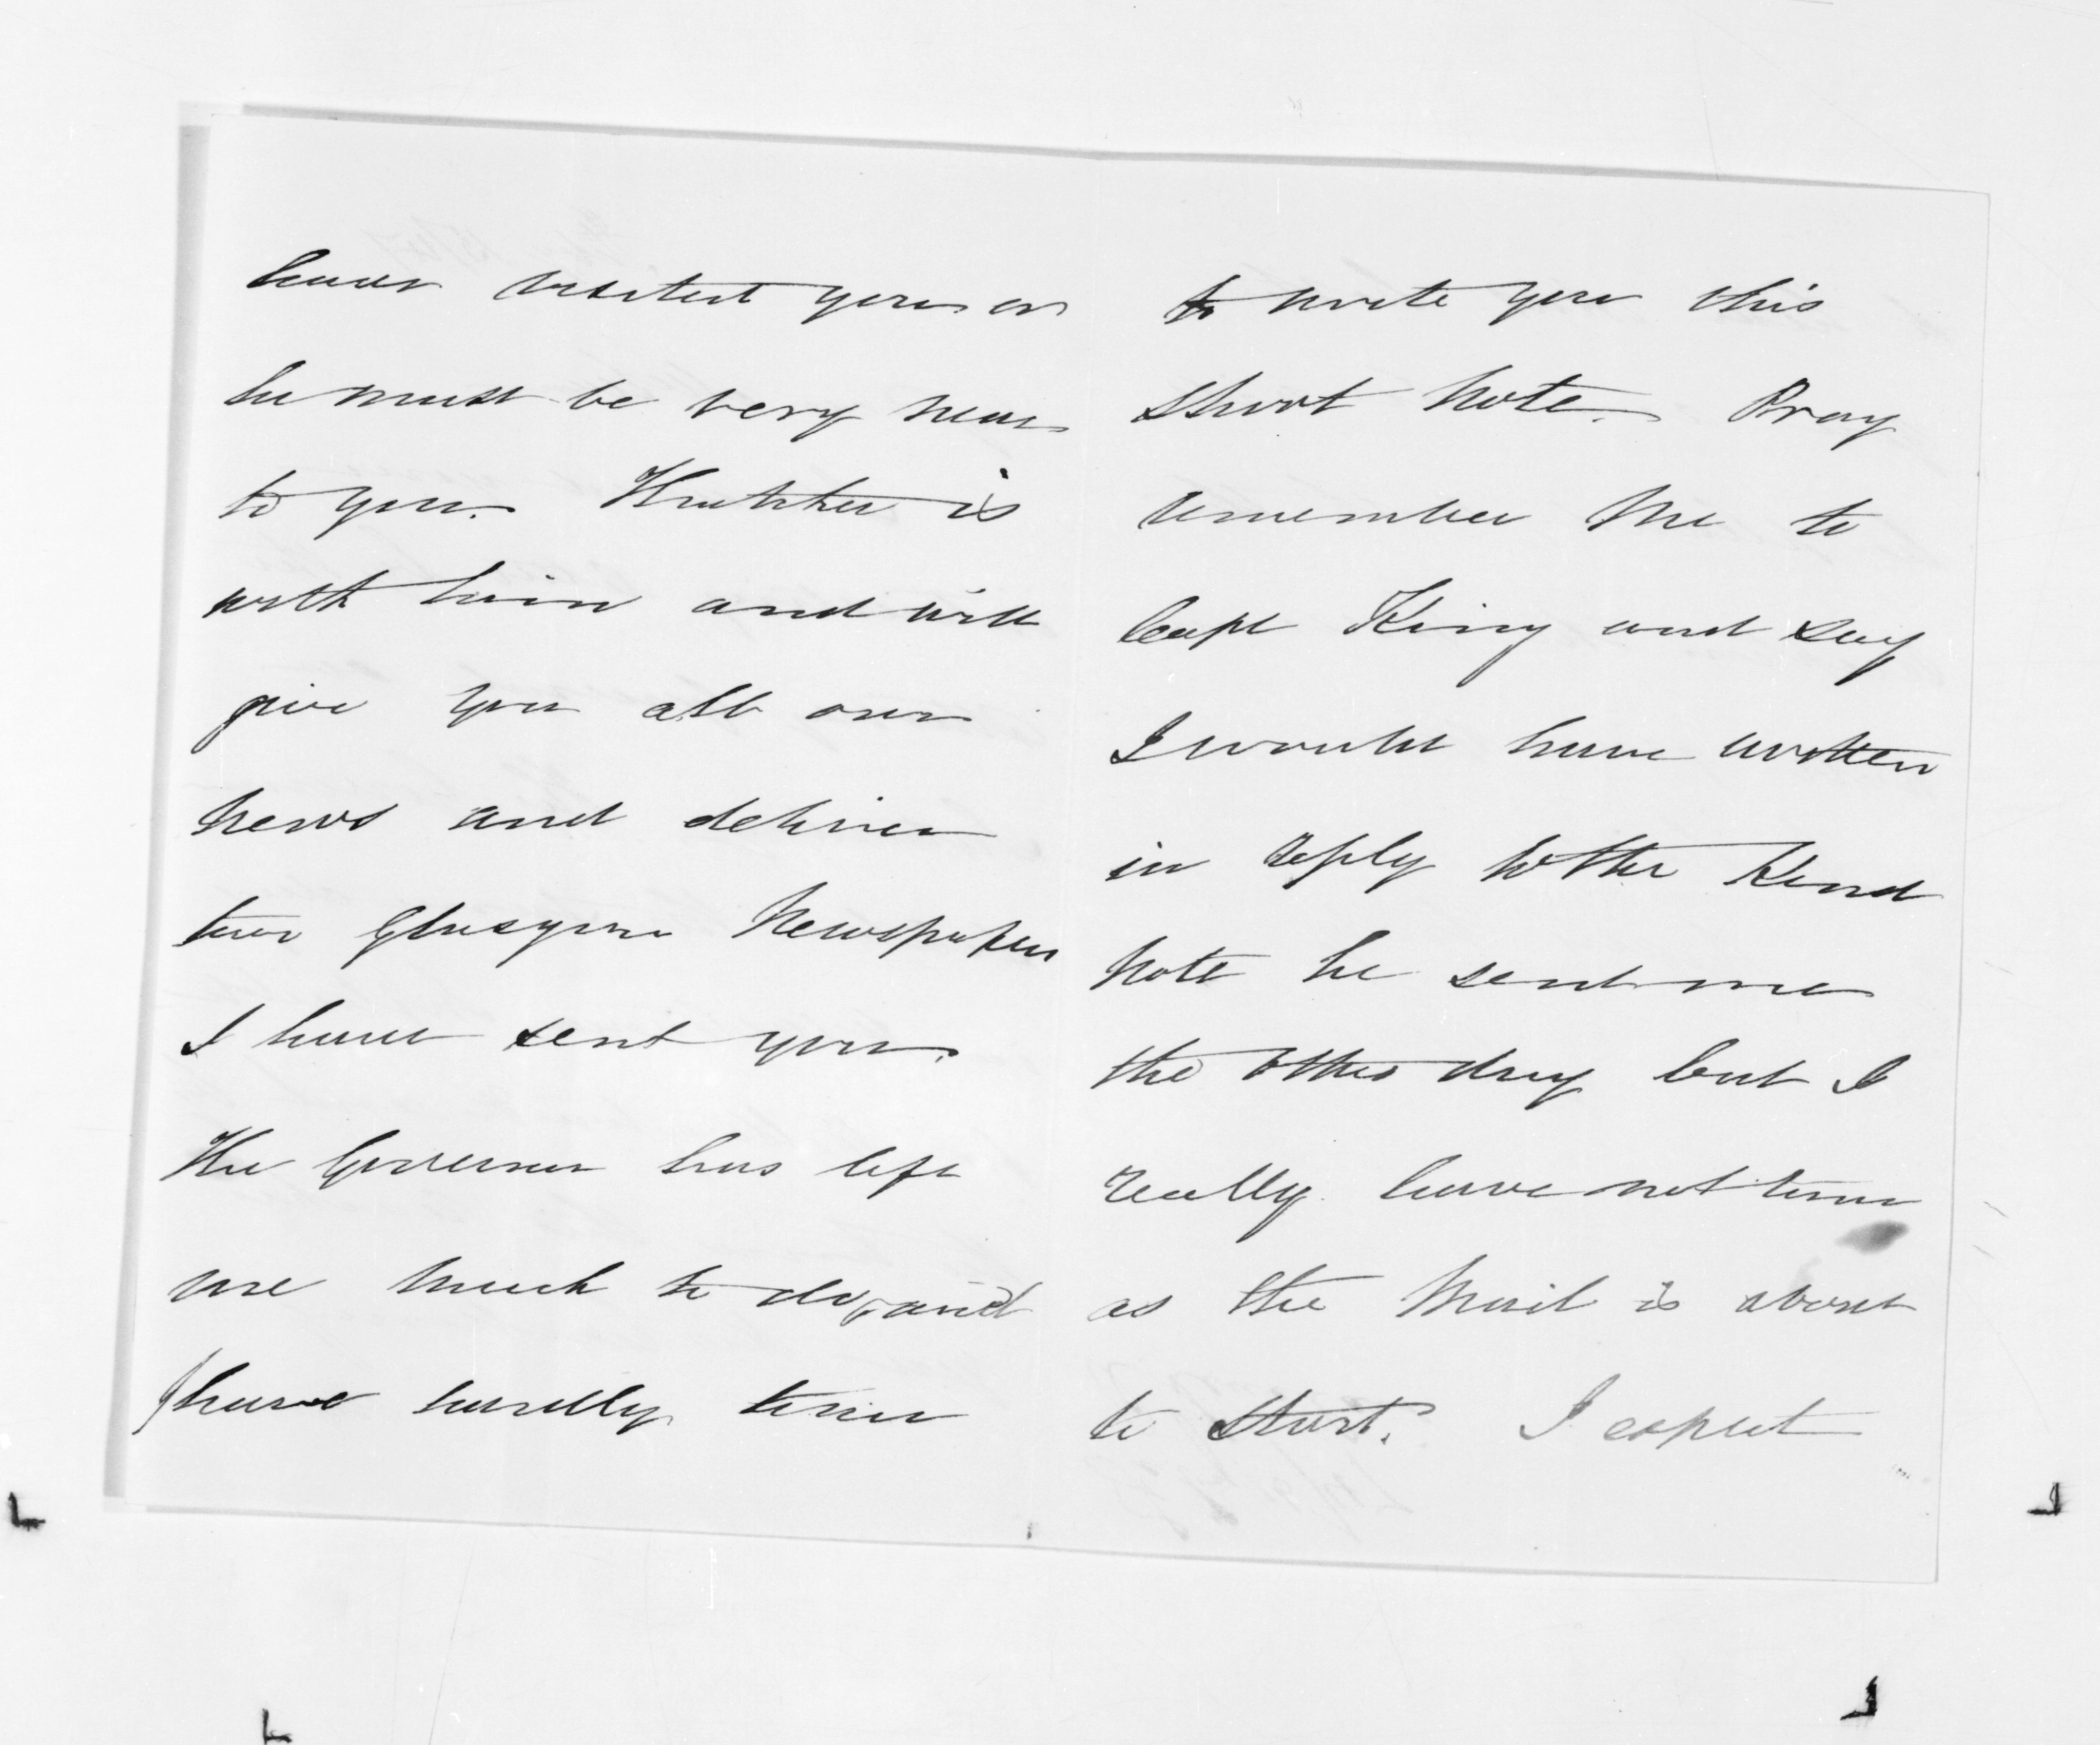 have visited you or
he must be very near
to you. Thatcher is
with him and will
give you all our
news and deliver
two Glasgow Newspapers
I have sent you.
The Governor has left
me much to do, and
I have hardly time
to write you this
short note. Pray
remember me to
Capt King and say
I would have written
in reply to the kind
note he sent me
the other day but I
really have not time
as the Mail is about
to start. I expect